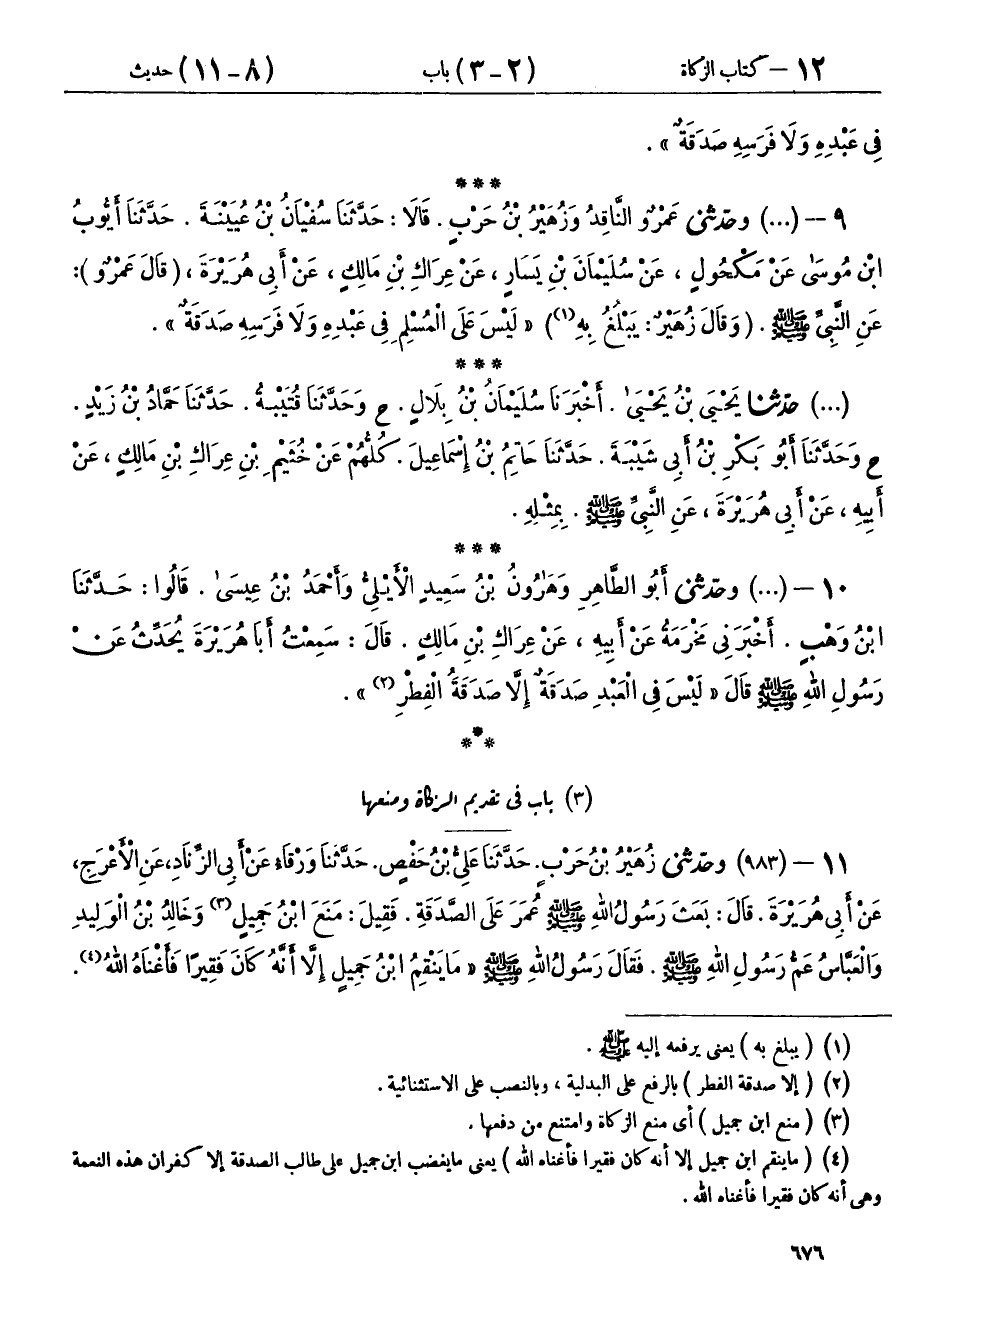 ١٢ – كتاب الزكاة (٢ – ٣) باب (٨ – ١١) حديث
فِي عَبْدِهِ وَلَا فَرَسِهِ صَدَقَةٌ » .
***
٩ – (...) وحدّثنى عَمْرٌو النَّاقِدُ وَزُهَيْرُ بْنُ حَرْبٍ . قَالَا : حَدَّثَنَا سُفْيَانُ بْنُ عُيَيْنَةَ . حَدَّثَنَا أَيُّوبُ
ابْنُ مُوسَىٰ عَنْ مَكْحُولٍ ، عَنْ سُلَيْمَانَ بْنِ يَسَارٍ ، عَنْ عِرَاكِ بْنِ مَالِكٍ ، عَنْ أَبِي هُرَيْرَةَ ، ( قَالَ عَمْرٌو ) :
عَنِ النَّبِيِّ ﷺ . ( وَقَالَ زُهَيْرٌ : يَبْلُغُ بِهِ(١) ) « لَيْسَ عَلَى الْمُسْلِمِ فِي عَبْدِهِ وَلَا فَرَسِهِ صَدَقَةٌ » .
***
(...) حدّثنا يَحْيَى بْنُ يَحْيَىٰ . أَخْبَرَنَا سُلَيْمَانُ بْنُ بِلَالٍ . ح وَحَدَّثَنَا قُتَيْبَةُ . حَدَّثَنَا حَمَّادُ بْنُ زَيْدٍ .
ح وَحَدَّثَنَا أَبُو بَكْرِ بْنُ أَبِي شَيْبَةَ . حَدَّثَنَا حَاتِمُ بْنُ إِسْمَاعِيلَ . كُلُّهُمْ عَنْ خُثَيْمِ بْنِ عِرَاكِ بْنِ مَالِكٍ ، عَنْ
أَبِيهِ ، عَنْ أَبِي هُرَيْرَةَ ، عَنِ النَّبِيِّ ﷺ . بِمِثْلِهِ .
***
١٠ – (...) وحدّثنى أَبُو الطَّاهِرِ وَهَارُونُ بْنُ سَعِيدٍ الْأَيْلِيُّ وَأَحْمَدُ بْنُ عِيسَىٰ . قَالُوا : حَدَّثَنَا
ابْنُ وَهْبٍ . أَخْبَرَنِي مَخْرَمَةُ عَنْ أَبِيهِ ، عَنْ عِرَاكِ بْنِ مَالِكٍ . قَالَ : سَمِعْتُ أَبَا هُرَيْرَةَ يُحَدِّثُ عَنْ
رَسُولِ اللهِ ﷺ قَالَ « لَيْسَ فِي الْعَبْدِ صَدَقَةٌ إِلَّا صَدَقَةُ الْفِطْرِ(٢) » .
***
(٣) باب فى تقديم الزكاة ومنعها
١١ – (٩٨٣) وحدّثنى زُهَيْرُ بْنُ حَرْبٍ . حَدَّثَنَا عَلِيُّ بْنُ حَفْصٍ . حَدَّثَنَا وَرْقَاءُ عَنْ أَبِي الزِّنَادِ ، عَنِ الْأَعْرَجِ ،
عَنْ أَبِي هُرَيْرَةَ . قَالَ : بَعَثَ رَسُولُ اللهِ ﷺ عُمَرَ عَلَى الصَّدَقَةِ . فَقِيلَ : مَنَعَ ابْنُ جَمِيلٍ(٣) وَخَالِدُ بْنُ الْوَلِيدِ
وَالْعَبَّاسُ عَمُّ رَسُولِ اللهِ ﷺ . فَقَالَ رَسُولُ اللهِ ﷺ « مَا يَنْقِمُ ابْنُ جَمِيلٍ إِلَّا أَنَّهُ كَانَ فَقِيرًا فَأَغْنَاهُ اللهُ(٤) .
(١) ( يبلغ به ) يعنى يرفعه إليه ﷺ .
(٢) ( إلا صدقة الفطر ) بالرفع على البدلية ، وبالنصب على الاستثنائية .
(٣) ( منع ابن جميل ) أى منع الزكاة وامتنع من دفعها .
(٤) ( ما ينقم ابن جميل إلا أنه كان فقيرا فأغناه الله ) يعنى ما يغضب ابن جميل على طالب الصدقة إلا كفران هذه النعمة
وهى أنه كان فقيرا فأغناه الله .
٦٧٦